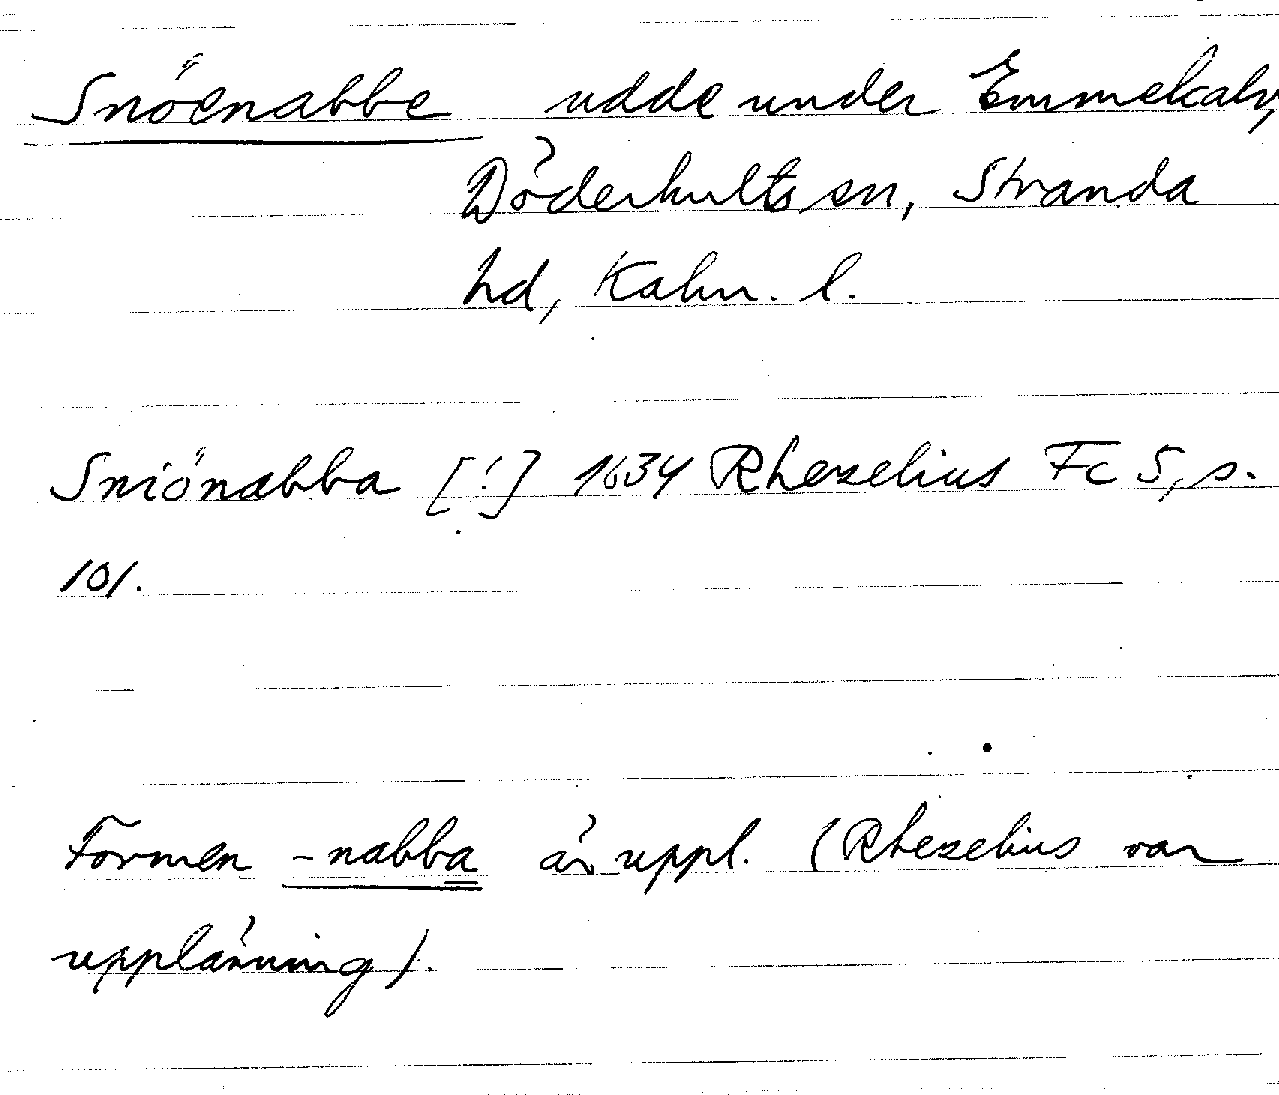 Snöenabbe udde under Emmekalv,
Döderhults sn, Stranda
hd, Kalm. l.
Sniönabba [!] 1634 Rhezelius Fc 5, s.
101.
Formen -nabba är uppl. (Rhezelius var
upplänning).